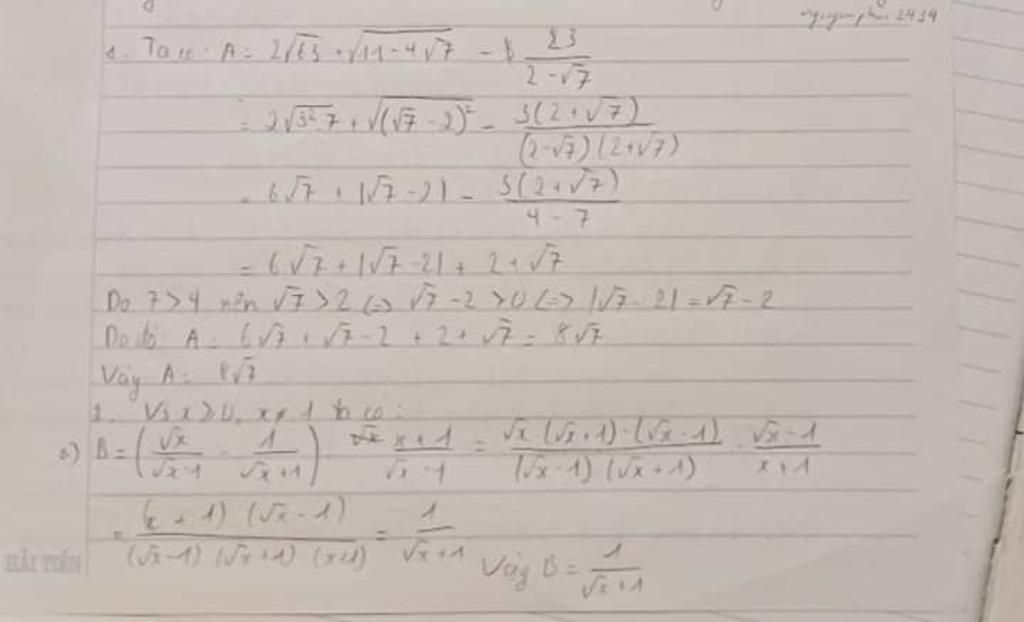 1. Ta có: A = 2√63 + √(11 - 4√7) - 3/(2 - √7)
= 2√(3².7) + √((√7 - 2)²) - 3(2 + √7)/((2 - √7)(2 + √7))
= 6√7 + |√7 - 2| - 3(2 + √7)/(4 - 7)
= 6√7 + |√7 - 2| + 2 + √7
Do 7 > 4 nên √7 > 2 (=> √7 - 2 > 0 (=> |√7 - 2| = √7 - 2
Do đó A = 6√7 + √7 - 2 + 2 + √7 = 8√7
Vậy A = 8√7
2. Với x ≥ 0, x ≠ 1 ta có:
a) B = (√x/(√x - 1) - 1/(√x + 1)) (x + 1)/(√x - 1) = (√x.(√x + 1) - (√x - 1))/((√x - 1)(√x + 1)) . (√x - 1)/(x + 1)
= (x + 1)(√x - 1)/((√x - 1)(√x + 1).(x + 1)) = 1/(√x + 1) Vậy B = 1/(√x + 1)
HẢI TIẾN